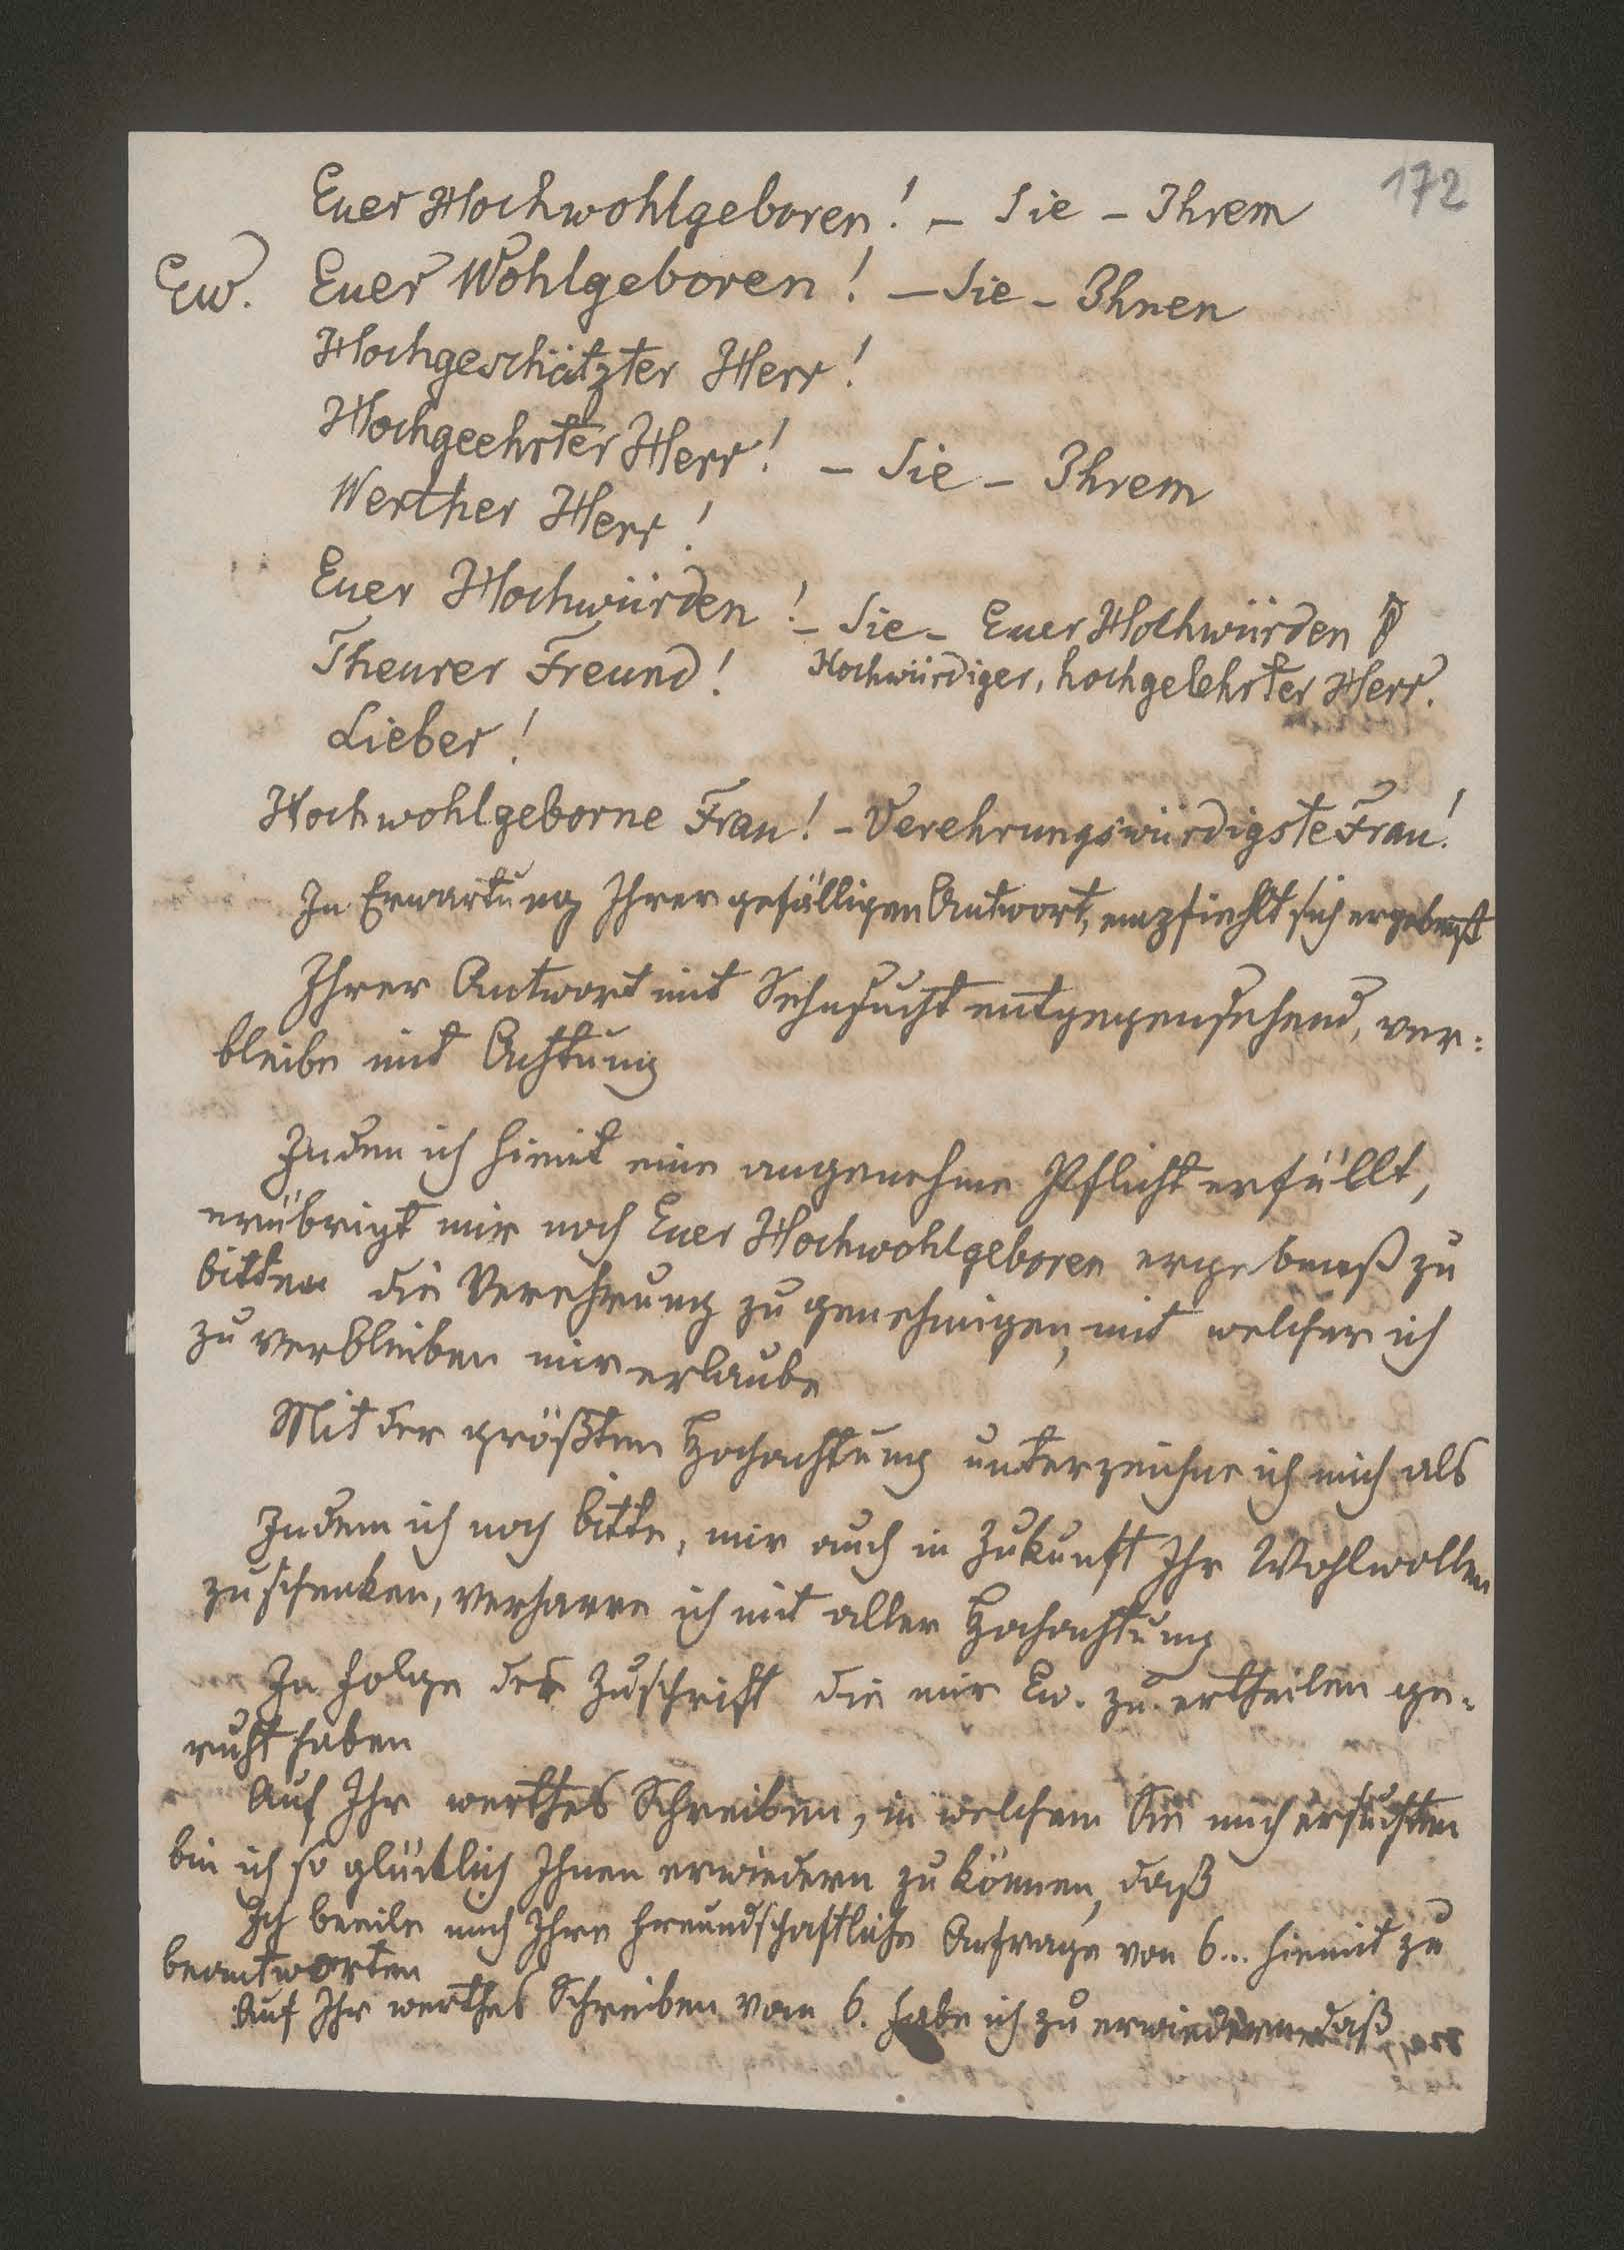 172
Euer Hochwohlgeboren! – Sie – Ihrem
Ew. Euer Wohlgeboren! – Sie – Ihnen
Hochgeschätzter Herr!
Hochgeehrter Herr! – Sie – Ihrem
Werther Herr!
Euer Hochwürden! – Sie – Euer Hochwürden
Theurer Freund! Hochwürdiger, hochgelehrter Herr.
Lieber!
Hochwohlgeborne Frau! – Verehrungswürdigste Frau!
In Erwartung Ihrer gefälligen Antwort, empfiehlt sich ergebenst
Ihrer Antwort mit Sehnsucht entgegensehend, ver:
bleibe mit Achtung
Indem ich hiemit eine angenehme Pflicht erfüllt,
erübrigt mir noch Euer Hochwohlgeboren ergebenß zu
bitten die Verehrung zu genehmigen, mit welcher ich
zu verbleiben mir erlaube
Mit der größten Hochachtung unterzeichne ich mich als
Indem ich noch bitte, mir auch in Zukunft Ihr Wohlwollen
zu schenken, verharre ich mit aller Hochachtung
In Folge der Zuschrift die mir Ew. zu ertheilen ge-
ruht haben
Auf Ihr werthes Schreiben, in welchem Sie mich ersuchten
bin ich so glücklich Ihnen erwiedern zu können, daß
Ich beeile mich Ihre freundschaftliche Anfrage von 6... hiemit zu
beantworten
Auf Ihr werthes Schreiben vom 6. habe ich zu erwiedern daß